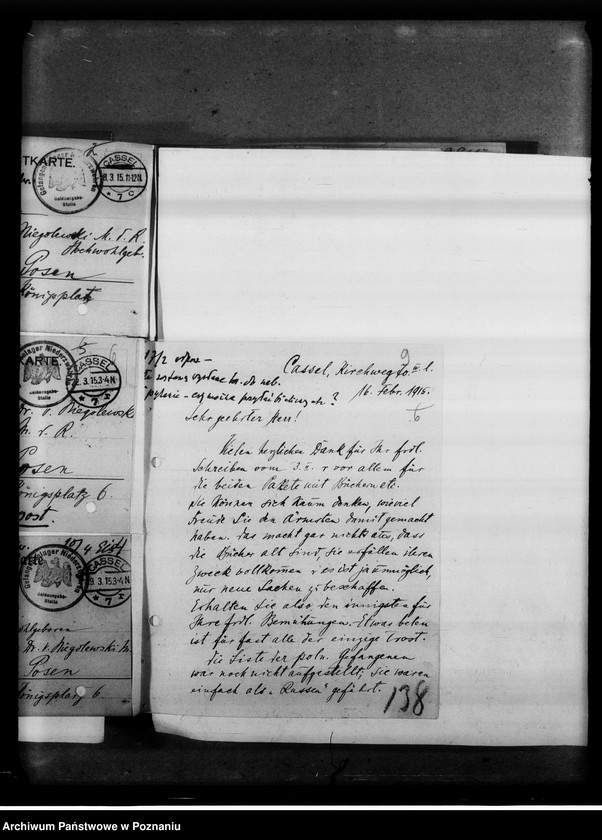 TKARTE.
Gefangenenlager Niederzwehren
Geldausgabe-
Stelle
CASSEL
8.3.15.11-12N.
* 7 c
Niegolewski M. d. R.
Hochwohlgeb.
Posen
Königsplatz
KARTE
CASSEL
.3.15.3-4N.
* 7
Dr. v. Niegolewski
M. d. R.
Posen
Königsplatz 6.
Gefangenenlager Niederzwehren
Geldausgabe-
Stelle
CASSEL
9.3.15.3-4N.
* 7
Dr. v. Niegolewski M.
Posen
Königsplatz 6.
9
Cassel, Kirchweg
16. Febr. 1915.
6
Sehr geehrter Herr!
Vielen herzlichen Dank für Ihr frdl.
Schreiben vom 3. vor allem für
die beiden Pakete mit Büchern etc.
Sie können sich kaum denken, wieviel
Freude Sie den Ärmsten damit gemacht
haben. Das macht gar nichts aus, dass
die Bücher alt sind, sie erfüllen ihren
Zweck vollkommen; es ist ja unmöglich,
nur neue Sachen zu beschaffen.
Erhalten Sie also den innigsten für
Ihre frdl. Bemühungen. Etwas beten
ist für fast alle der einzige Trost.
Die Liste der poln. Gefangenen
war noch nicht aufgestellt, sie waren
einfach als "Russen" geführt.
138
Archiwum Państwowe w Poznaniu